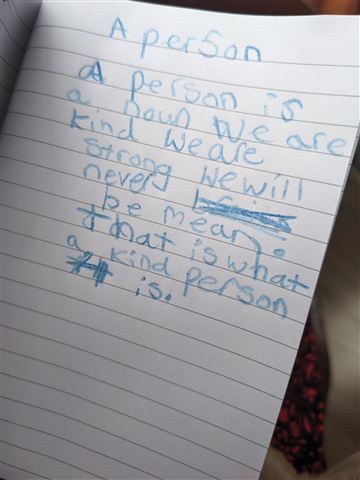 A person
A person is
a noun We are
kind We are
strong We will
never
be mean.
that is what
a kind person
is.